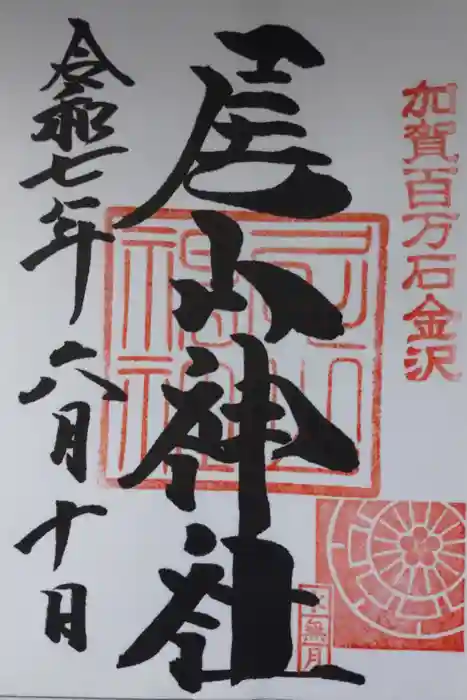 加賀百万石金沢
尾山神社
令和七年六月十日
尾山神社
水無月